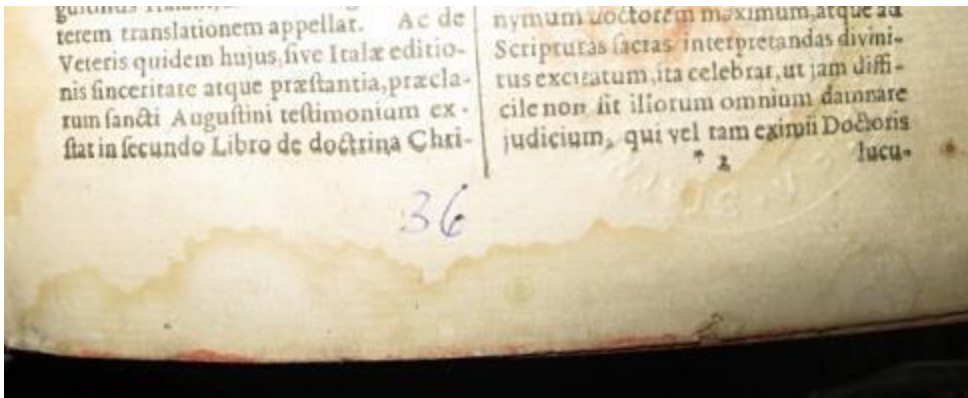 terem translationem appellat. Ac de
Veteris quidem hujus, sive Italæ editio-
nis sinceritate atque præstantia, præcla-
rum sancti Augustini testimonium ex-
stat in secundo Libro de doctrina Chri-
nymum doctorem maximum, atque ad
Scripturas sacras interpretandas divini-
tus excitatum, ita celebrat, ut jam diffi-
cile non sit illorum omnium damnare
judicium, qui vel tam eximii Doctoris
* 2 lucu-
36